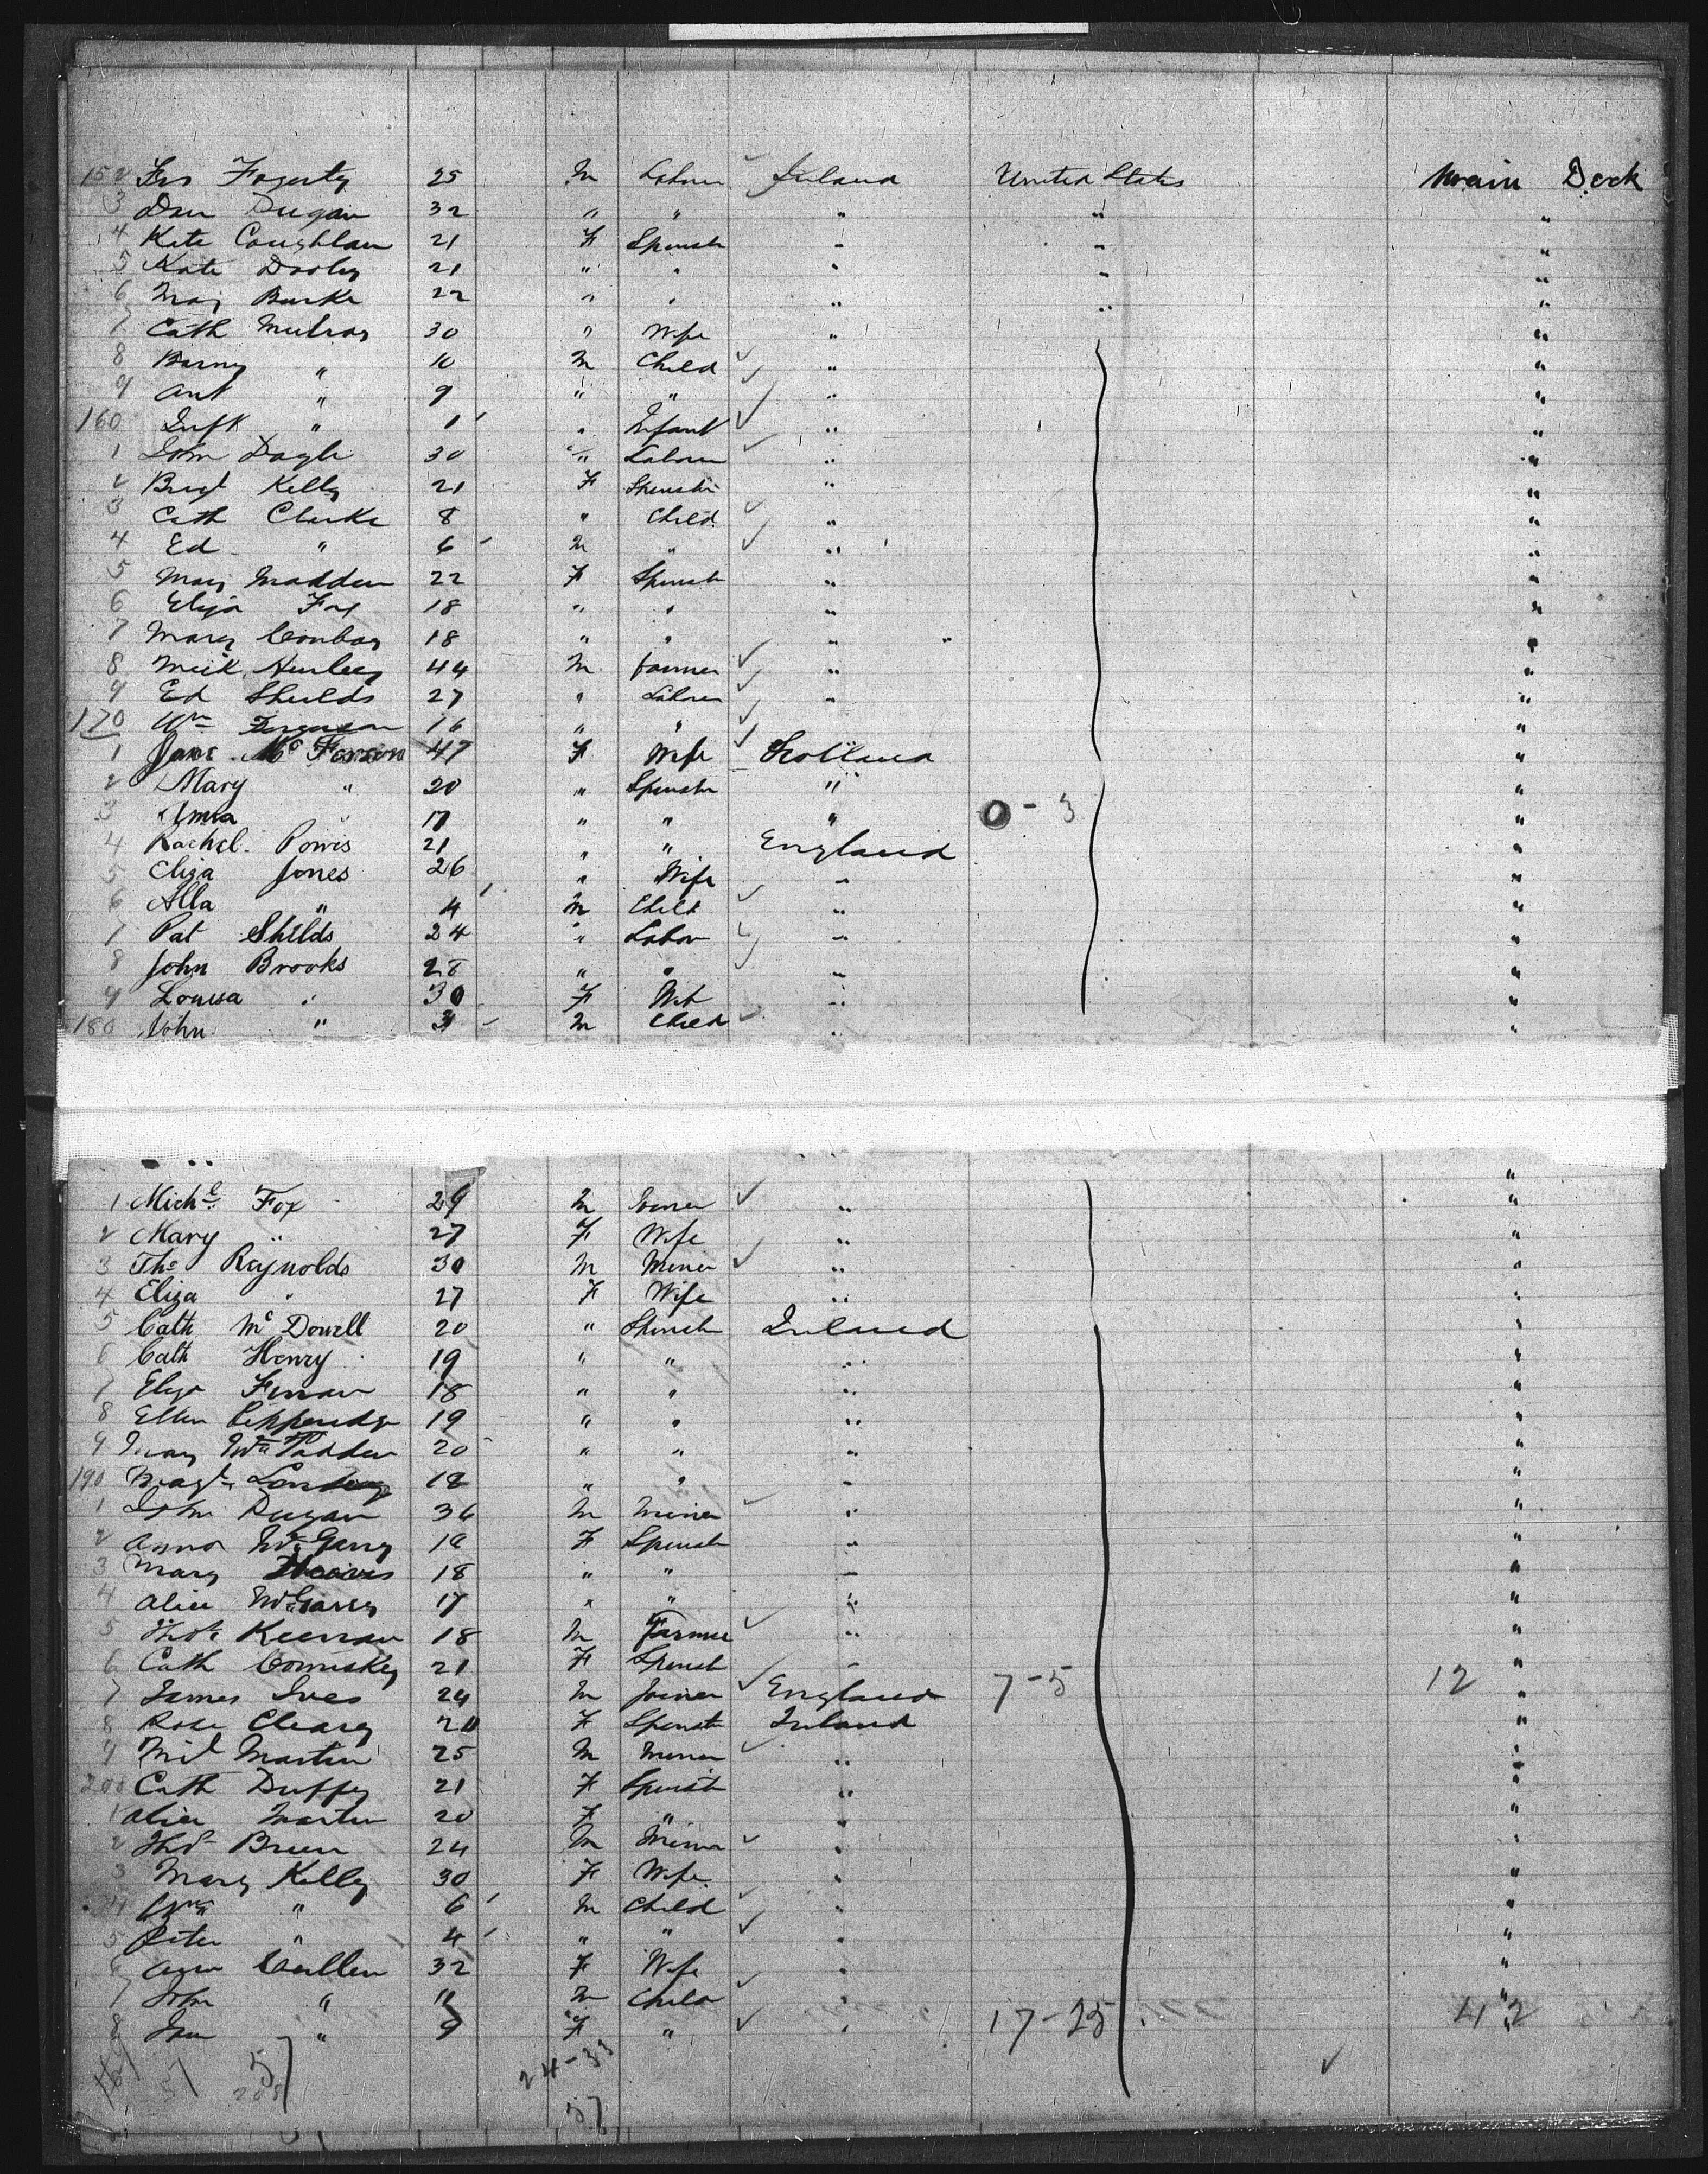 152 Fogerty 25 M Laborer Ireland United States Main Deck
3 Dan Dugan 32 " " " " "
4 Kate Coughlan 21 F Spinster " " "
5 Kate Dooley 21 " " " " "
6 Mary Burke 22 " " " " "
7 Cath 30 " Wife " "
8 " 10 M Child " "
9 Ant " 9 " " " "
160 Inft " 1 " Infant " "
1 John 30 " Laborer " "
2 Kelly 21 F Spinster " "
3 Cath Clarke 8 " Child " "
4 Ed " 6 M " " "
5 Mary Madden 22 F Spinster " "
6 Eliza Fox 18 " " " "
7 Mary Conboy 18 " " " "
8 Mick Hurley 44 M Farmer " "
9 Ed Shields 27 " Laborer " "
170 Wm Ferguson 16 " " " "
1 Jane Mc 47 F Wife Scotland "
2 Mary " 20 " Spinster " "
3 17 " " " 0-3 "
4 Rachel Powis 21 " " England "
5 Eliza Jones 26 " Wife " "
6 Alla " 4 M Child " "
7 Pat Shilds 24 " Labor " "
8 John Brooks 28 " " " "
9 Louisa " 30 F Wife " "
180 John " 3 M Child " "
1 Michl Fox 29 M " "
2 Mary " 27 F Wife " "
3 Tho Raynolds 30 M Miner " "
4 Eliza " 27 F Wife " "
5 Cath McDowell 20 " Spinster Ireland "
6 Cath Henry 19 " " " "
7 Eliza 18 " " " "
8 Ellen 19 " " " "
9 Mary McPadden 20 " " " "
190 Magt 18 " " " "
1 John Dugan 36 M Miner " "
2 Anna McGarry 18 F Spinster " "
3 Mary 18 " " " "
4 Alice McGarry 17 " " " "
5 Thos Keernan 18 M Farmer " "
6 Cath Comiskey 21 F Spinster " "
7 James Ives 24 M Joiner England 7-5 12 "
8 Rose Cleary 20 F Spinster Ireland "
9 Martin 25 M Miner " "
200 Cath Duffy 21 F Spinster " "
1 Alice Martin 20 F " " "
2 Thos Breen 24 M Miner " "
3 Mary Kelly 30 F Wife " "
4 Wm " 6 M Child " "
5 Peter " 4 " " " "
6 Ann Cullen 32 F Wife " "
7 John " 11 M Child " "
8 Jane " 9 F " " 17-25 42 "
57 51 208 24-33
57